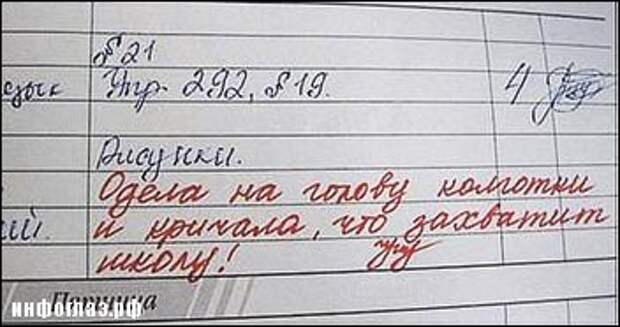 § 21
зык Упр. 292, § 19. 4
Рисунки.
Одела на голову колготки
ий. и кричала, что захватит
школу!
Пятница
инфоглаз.рф